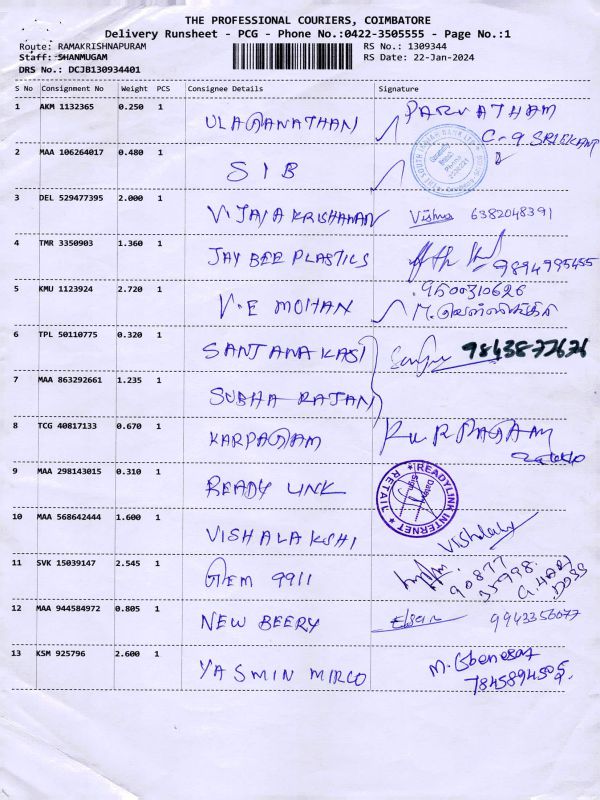 THE PROFESSIONAL COURIERS, COIMBATORE
Delivery Runsheet - PCG - Phone No.:0422-3505555 - Page No.:1
Route: RAMAKRISHNAPURAM RS No.: 1309344
Staff: SHANMUGAM RS Date: 22-Jan-2024
DRS No.: DCJB130934401
S No Consignment No Weight PCS Consignee Details Signature
1 AKM 1132365 0.250 1 ULAGANATHAN PARVATHAM
C-9 SRIEKANT
2 MAA 106264017 0.480 1 SIB
3 DEL 529477395 2.000 1 VIJAYA KRISHANAN Vishnu 6382048391
4 TMR 3350903 1.360 1 JAY BEE PLASTICS 9894795455
5 KMU 1123924 2.720 1 V.E MOHAN 9500310626
6 TPL 50110775 0.320 1 SANTANA KASI 98438-77676
7 MAA 863292661 1.235 1 SUBHA RAJAN
8 TCG 40817133 0.670 1 KARPAGAM KURPAGAM
9 MAA 298143015 0.310 1 READY LINK READYLINK INTERNET * RETAIL *
10 MAA 568642444 1.600 1 VISHALAKSHI Vishalaly
11 SVK 15039147 2.545 1 GEM 9911 90877
35798.
G.HARI
DOSS
12 MAA 944584972 0.805 1 NEW BEERY 9943356077
13 KSM 925796 2.600 1 YASMIN MIRCO
7845894505